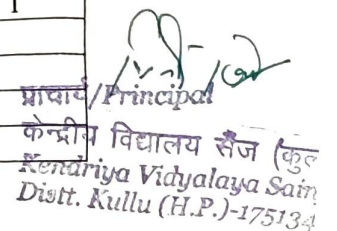 प्राचार्य/Principal
केन्द्रीय विद्यालय सैंज (कुल
Kendriya Vidyalaya Sain
Distt. Kullu (H.P.)-175134